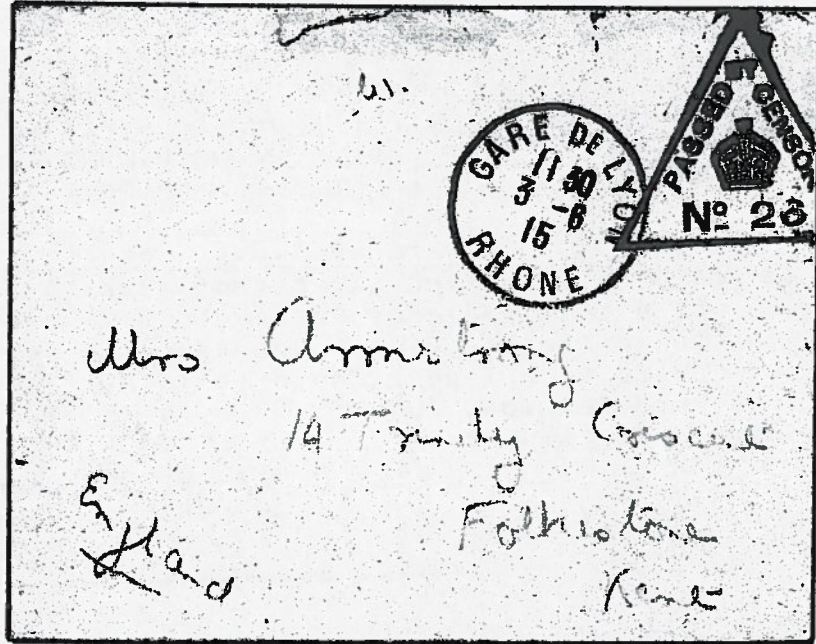 GARE DE LYON
11 30
3 -6
15
RHONE
PASSED BY CENSOR
Nº 26
Mrs Armstrong
14 Trinity Crescent
Folkestone
Kent
England